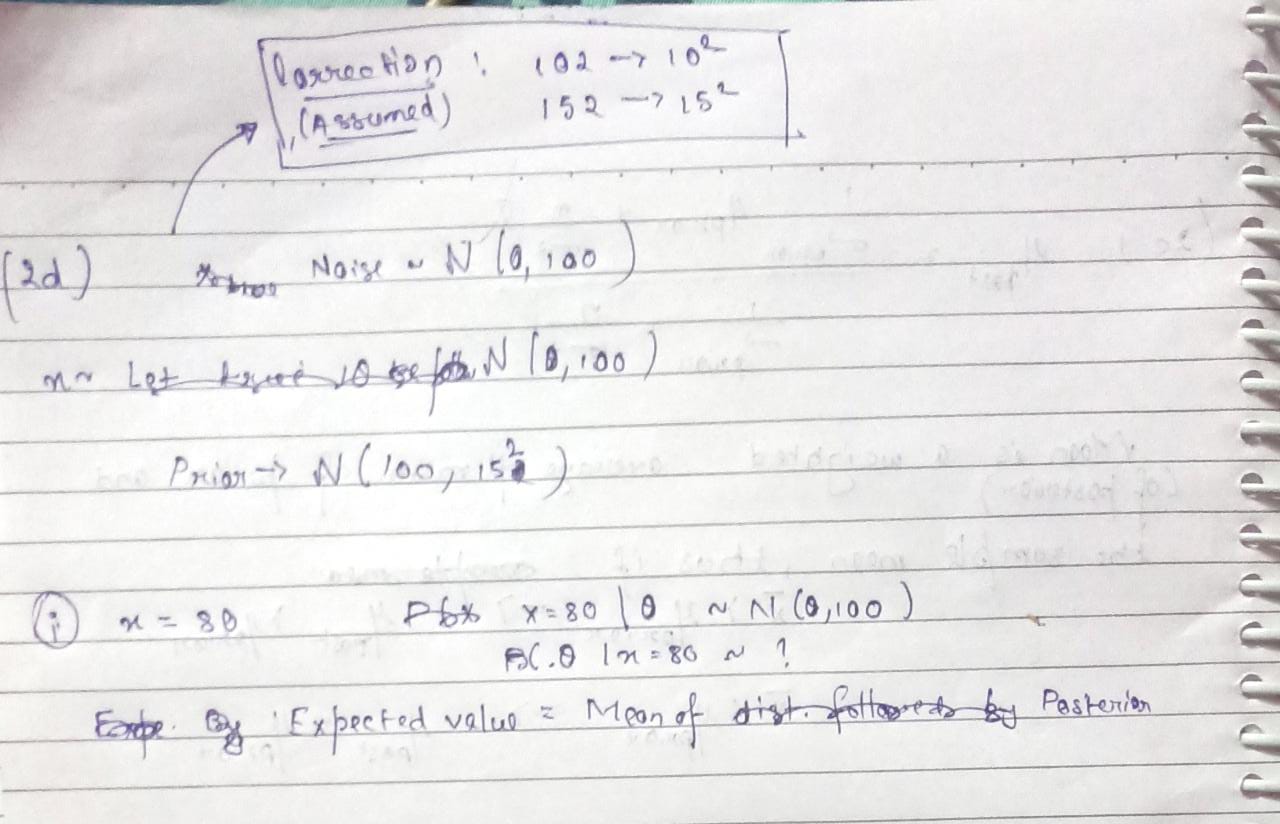 Correction : 102 → 10²
(Assumed) 152 → 15²
(2d) Noise ~ N (0, 100)
x ~ Let N (θ, 100)
Prior → N (100, 15²)
(i) x = 80 x = 80 | θ ~ N (θ, 100)
θ | x = 80 ~ ?
Expected value = Mean of dist. followed by Posterior